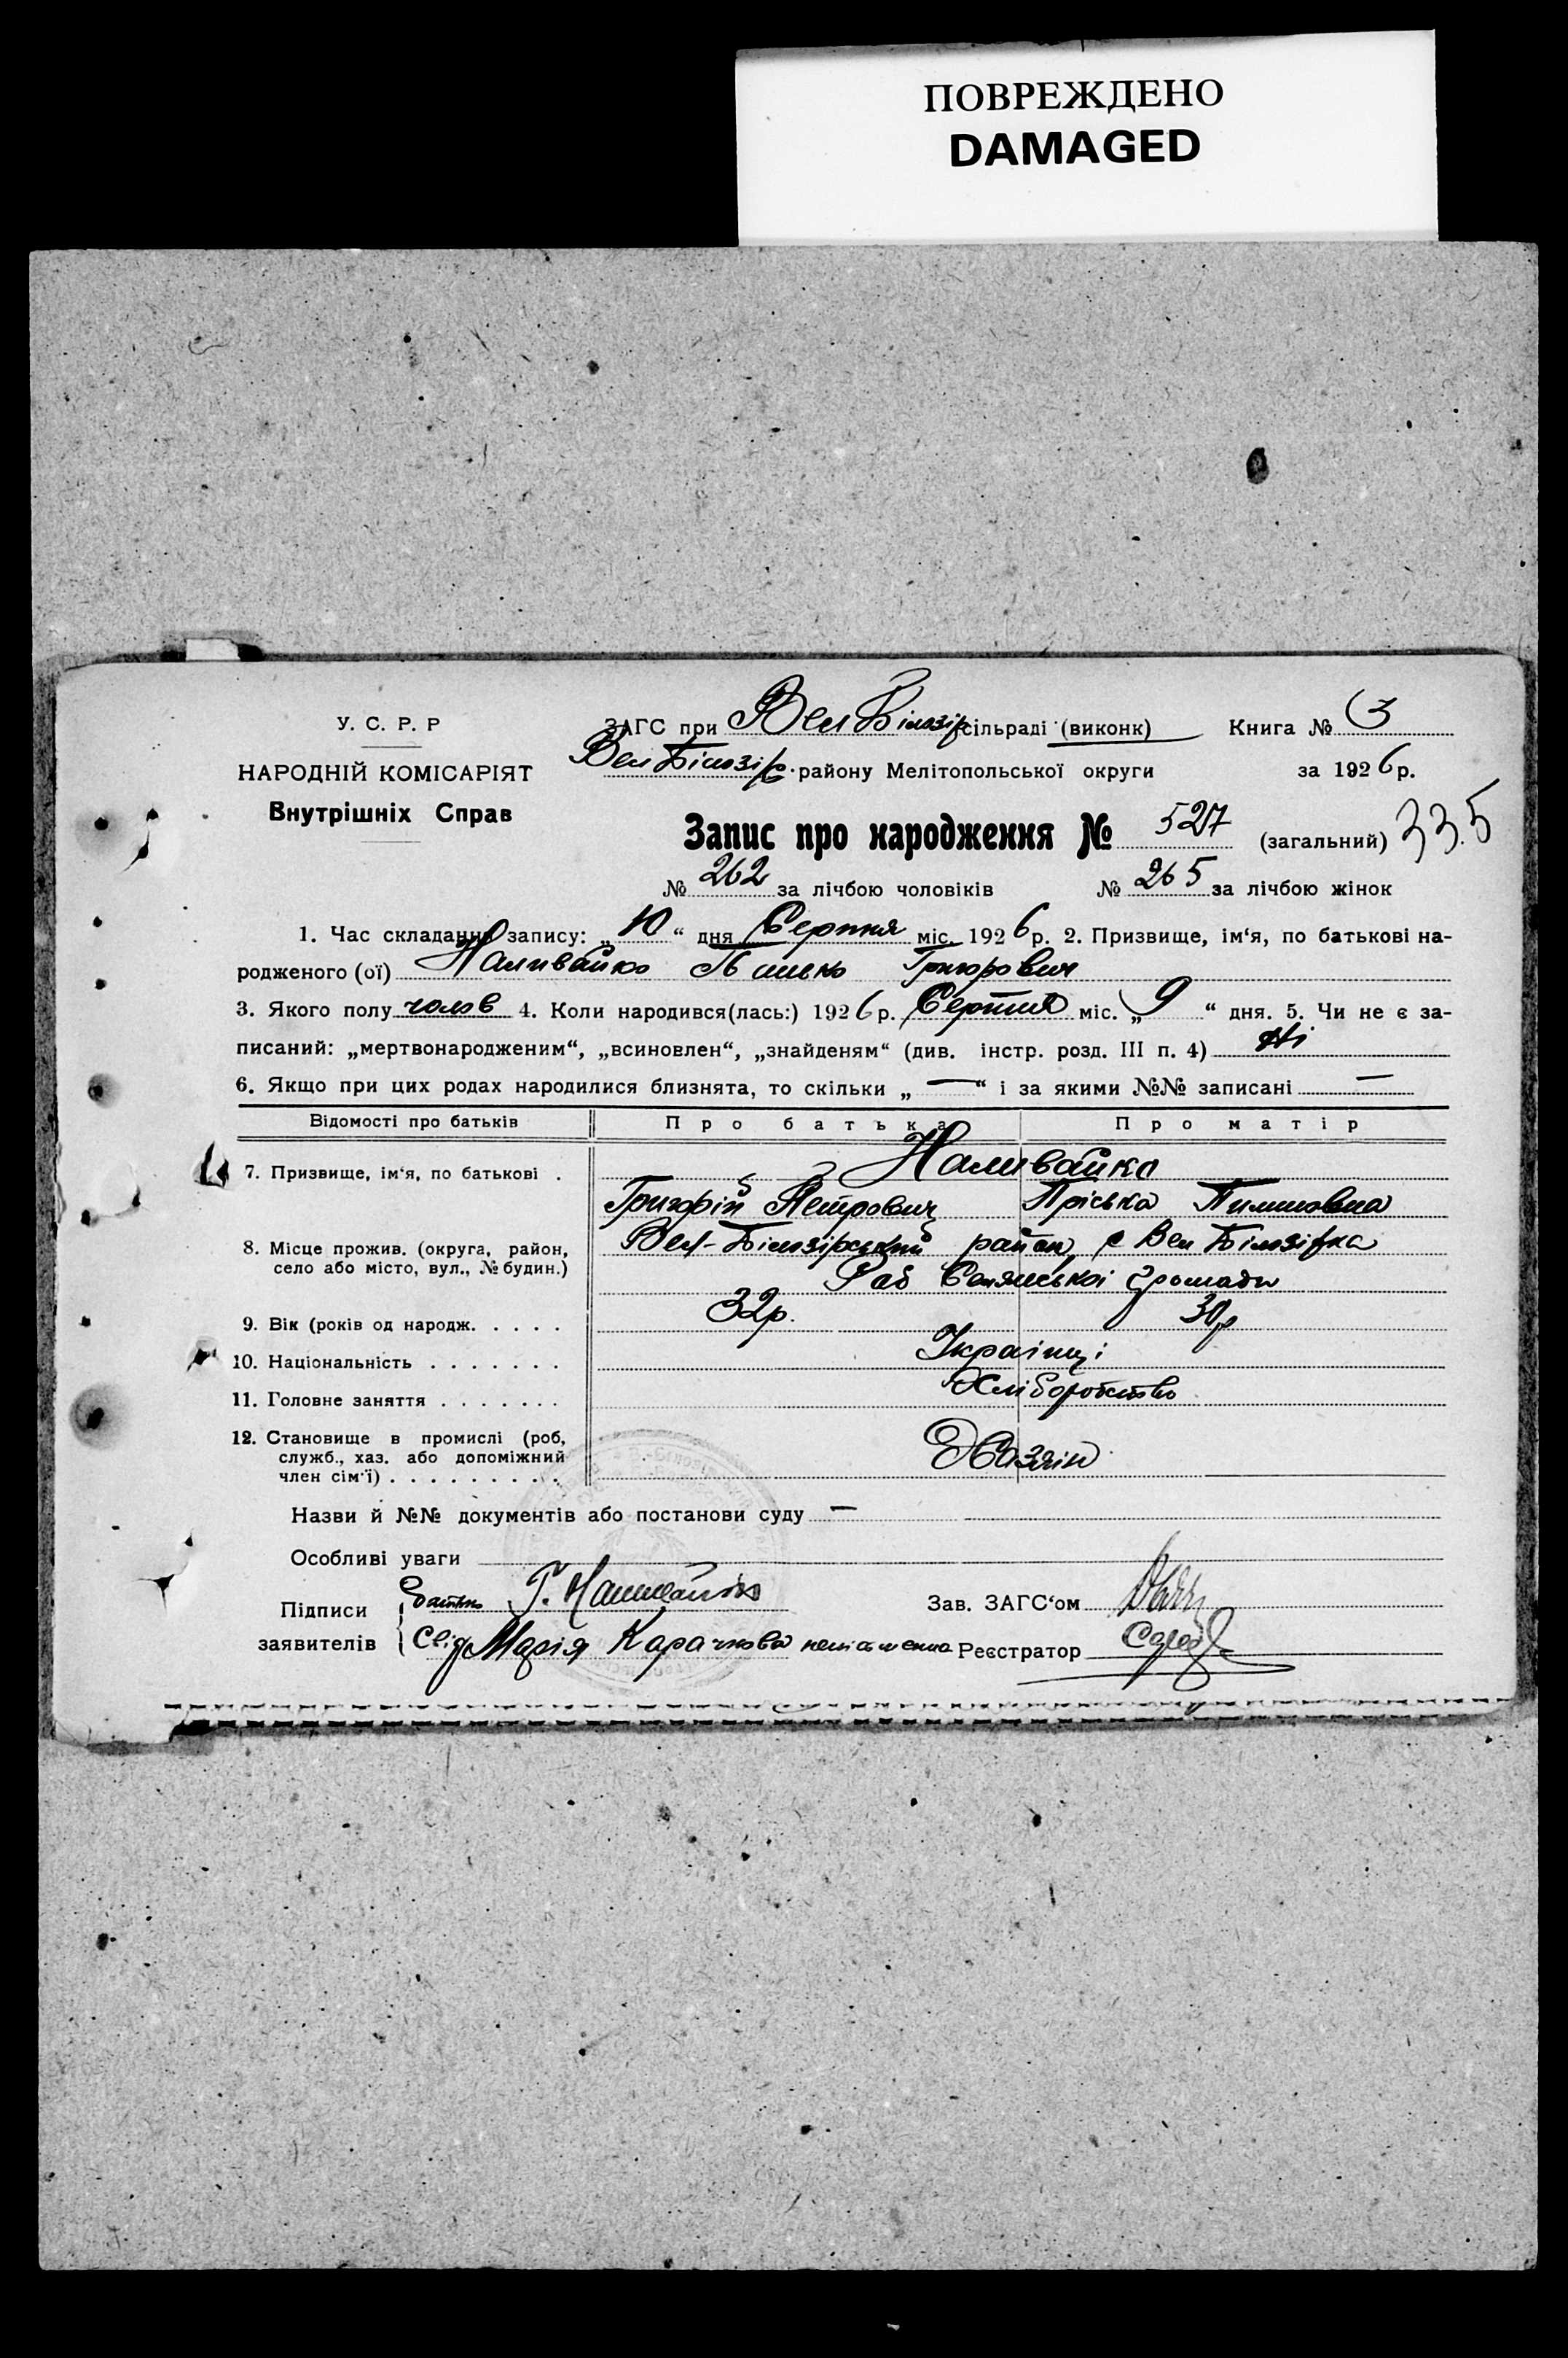 ПОВРЕЖДЕНО
DAMAGED
У. С. Р. Р
НАРОДНІЙ КОМІСАРІЯТ
Внутрішніх Справ
ЗАГС при Вел Білозір сільраді (виконк) Книга № 3
Вел Білозір. району Мелітопольської округи за 1926 р.
Запис про народження № 527 (загальний) 335
№ 262 за лічбою чоловіків № 265 за лічбою жінок
1. Час складання запису: „10“ дня Серпня міс. 1926 р. 2. Призвище, ім‘я, по батькові на-
родженого (ої) Наливайко Григорович
3. Якого полу чолов 4. Коли народився(лась:) 1926 р. Серпня міс. „9“ дня. 5. Чи не є за-
писаний: „мертвонародженим“, „всиновлен“, „знайденям“ (див. інстр. розд. III п. 4) Ні
6. Якщо при цих родах народилися близнята, то скільки „—“ і за якими №№ записані —
Відомості про батьків Про батька Про матір
7. Призвище, ім‘я, по батькові . Наливайко
Григорій Петрович Пріська Тимишовна
8. Місце прожив. (округа, район, село або місто, вул., № будин.) Вел-Білозірський район, с Вел Білозірка
Раб Селянської громади
9. Вік (років од народж. . . . . 32р. 30р
10. Національність . . . . . . . Українці
11. Головне заняття . . . . . . . Хліборобство
12. Становище в промислі (роб, служб., хаз. або допоміжний член сім‘ї) . . . . . . . . . . Хазяін
Назви й №№ документів або постанови суду —
Особливі уваги
Підписи заявителів { батько Г. Наливайко Зав. ЗАГС‘ом
Свід Марія неписьменна Реєстратор